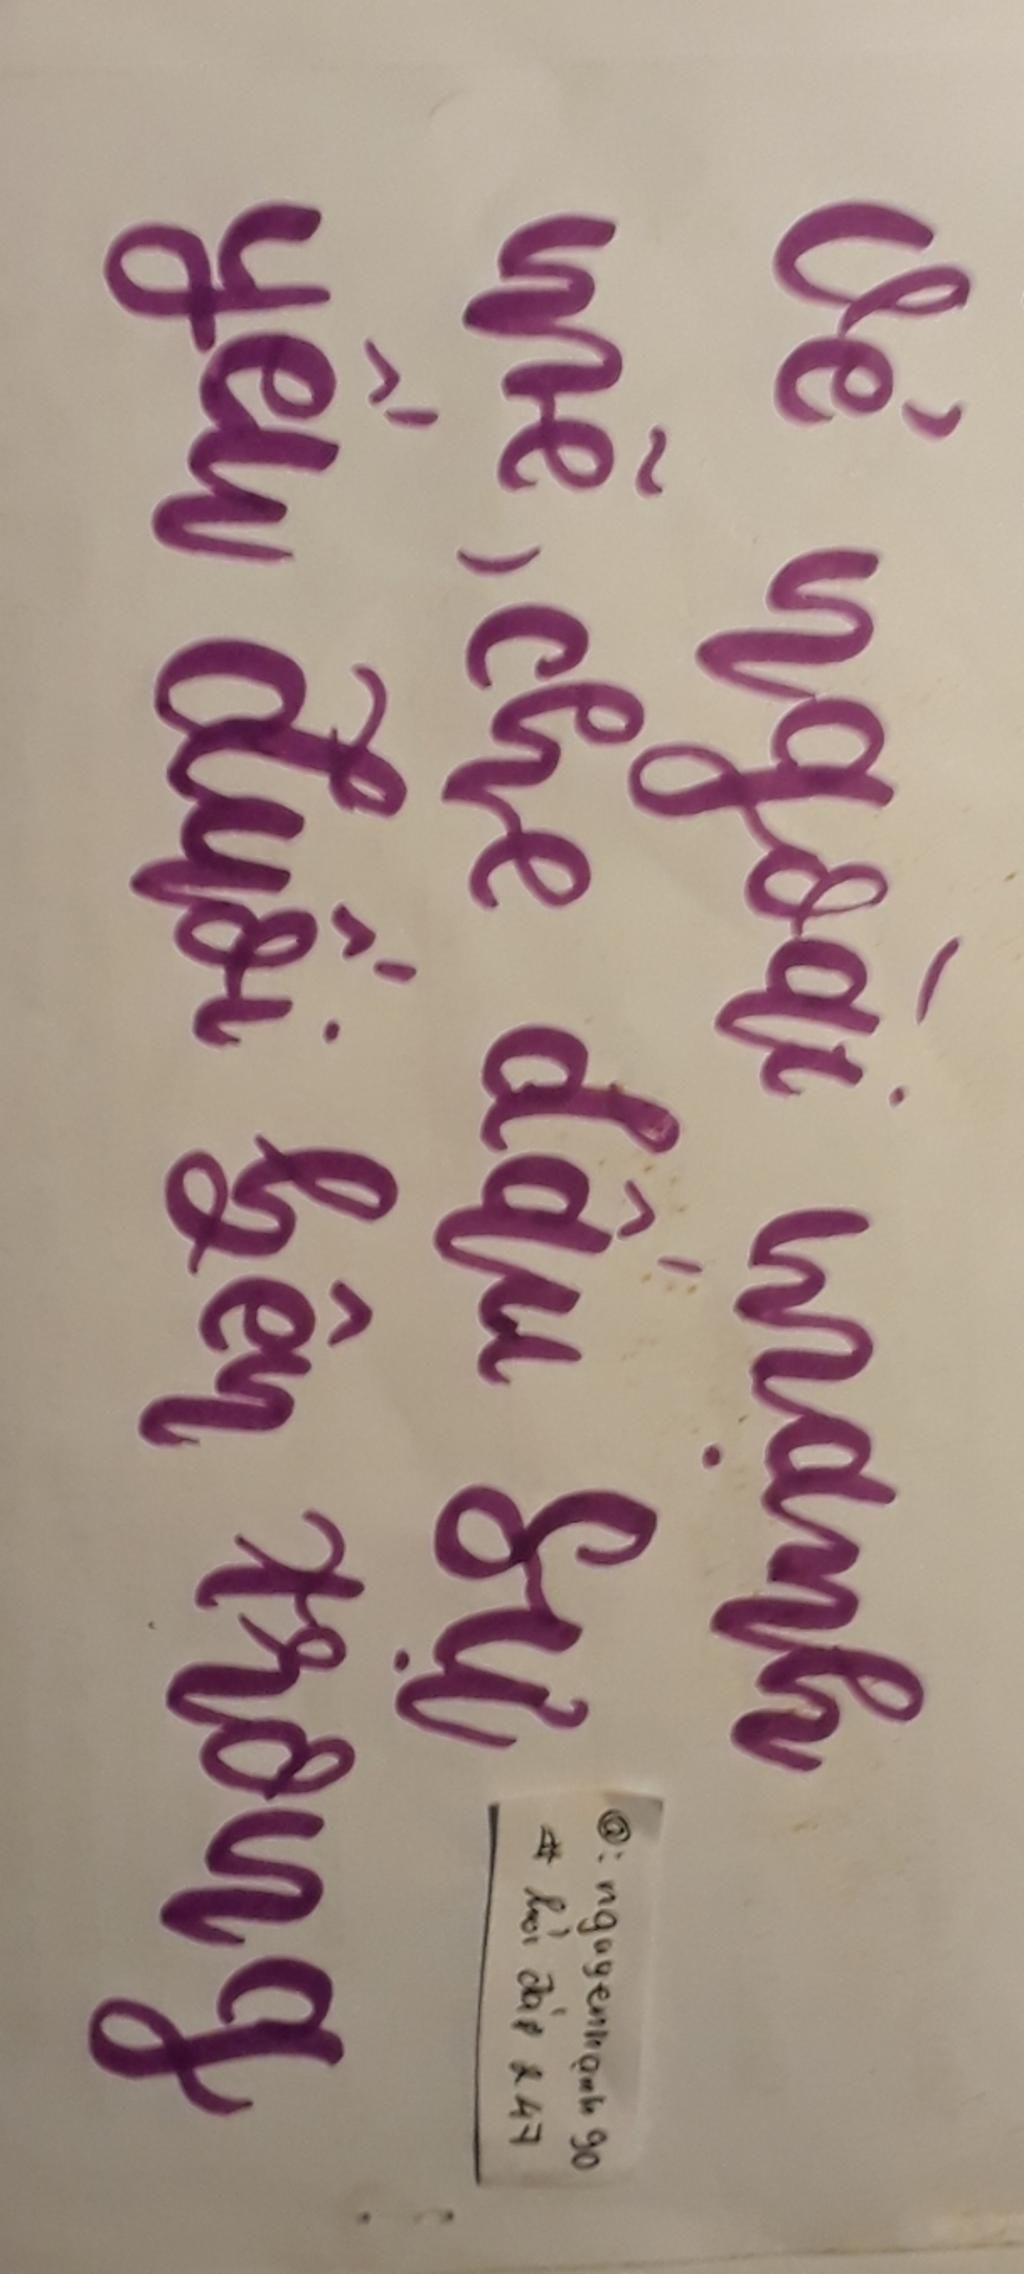 Vẻ ngoài mạnh
mẽ, che dấu sự
yếu đuối bên trong
@: nguyenmạnh 90
# hỏi đáp 247